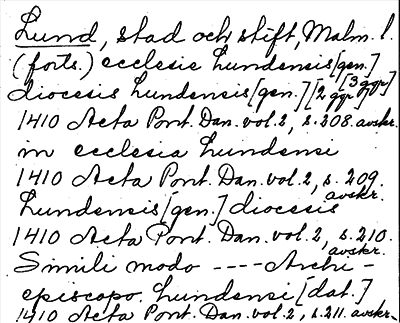 Lund, stad och stift, Malm. l.
(forts.) ecclesie Lundensis [gen.]
[3 ggr]
diocesis Lundensis [gen.] [2 ggr]
1410 Acta Pont. Dan. vol. 2, s. 208. avskr.
in ecclesia Lundensi
1410 Acta Pont. Dan. vol. 2, s. 209.
avskr.
Lundensis [gen.] diocesis
1410 Acta Pont. Dan. vol. 2, s. 210.
avskr.
Simili modo ---- Archi-
episcopo Lundensi [dat.]
1410 Acta Pont. Dan. vol. 2, s. 211. avskr.